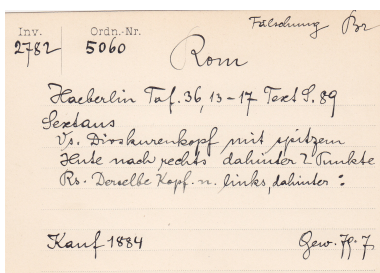 Fälschung Br
Inv. Ordn.-Nr.
2782 5060
Rom
Haeberlin Taf. 36, 13-17 Text S. 89
Sextans
Vs. Dioskurenkopf mit spitzem
Hute nach rechts dahinter 2 Punkte
Rs. Derselbe Kopf. n. links, dahinter :
Kauf 1884 Gew. 79.7